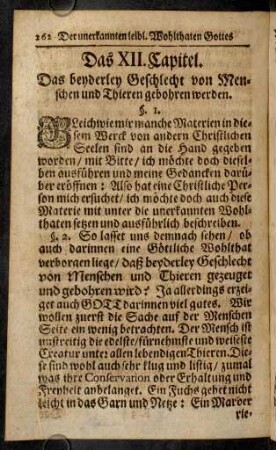 262 Der unerkannten leibl. Wohlthaten Gottes
Das XII. Capitel.
Das beyderley Geschlecht von Men-
schen und Thieren gebohren werden.
§. 1.
GLeichwie mir manche Materien in die-
sem Werck von andern Christlichen
Seelen sind an die Hand gegeben
worden/ mit Bitte/ ich möchte doch diesel-
ben ausführen und meine Gedancken darü-
ber eröffnen: Also hat eine Christliche Per-
son mich ersuchet/ ich möchte doch auch diese
Materie mit unter die unerkannten Wohl-
thaten setzen und ausführlich beschreiben.
§. 2. So lasset uns demnach sehen/ ob
auch darinnen eine Göttliche Wohlthat
verborgen liege/ daß beyderley Geschlecht
von Menschen und Thieren gezeuget
und gebohren wird? Ja allerdings erzei-
get auch GOTT darinnen viel gutes. Wir
wollen zuerst die Sache auf der Menschen
Seite ein wenig betrachten. Der Mensch ist
unstreitig die edelste/ fürnehmste und weiseste
Creatur unter allen lebendigen Thieren. Die-
se sind wohl auch sehr klug und listig/ zumal
was ihre Conservation oder Erhaltung und
Freyheit anbelanget. Ein Fuchs gehet nicht
leicht in das Garn und Netze: Ein Marder
rie-